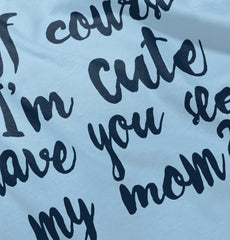 Of course
I'm cute
have you seen
my mom?